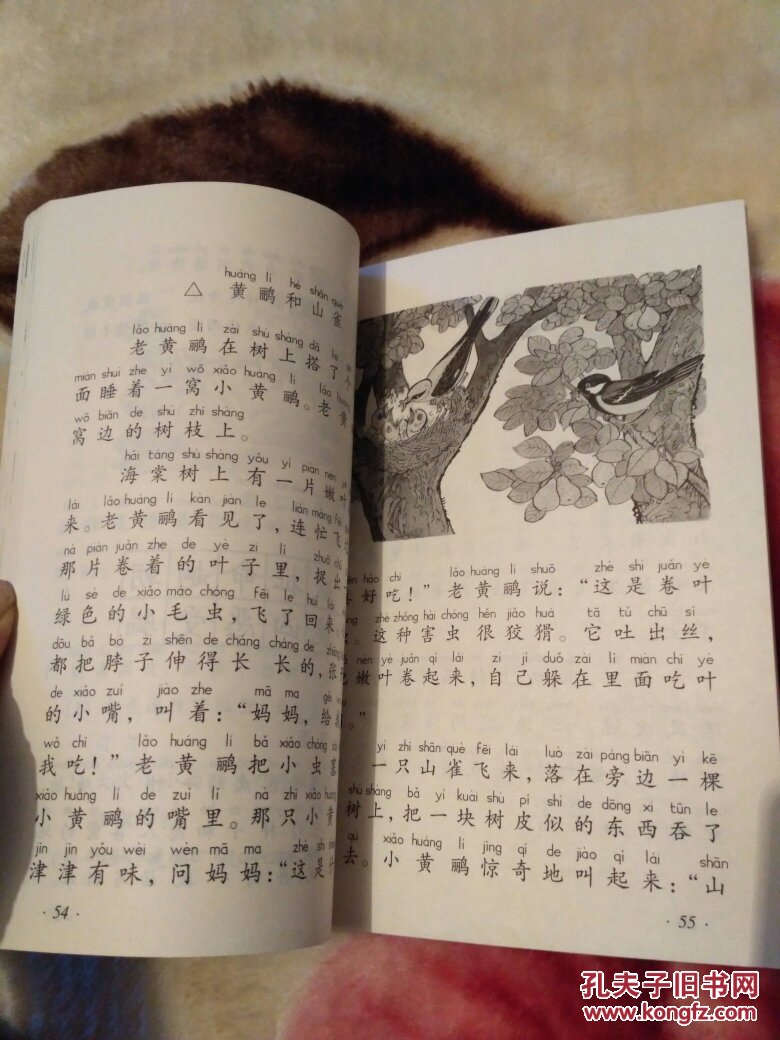 huáng lí hé shān què
△ 黄鹂和山雀
lǎo huáng lí zài shù shàng dā le
老黄鹂在树上搭了
miàn shuì zhe yì wō xiǎo huáng lí lǎo
面睡着一窝小黄鹂。老黄
wō biān de shù zhī shàng
窝边的树枝上。
hǎi táng shù shàng yǒu yí piàn nèn yè
海棠树上有一片嫩叶
lái lǎo huáng lí kàn jiàn le lián máng fēi
来。老黄鹂看见了,连忙飞
nà piàn juǎn zhe de yè zi lǐ zhuō
那片卷着的叶子里,捉出
lǜ sè de xiǎo máo chóng fēi le huí lái
绿色的小毛虫,飞了回来
dōu bǎ bó zi shēn de cháng cháng de zhāng
都把脖子伸得长长的,张
de xiǎo zuǐ jiào zhe mā ma gěi
的小嘴,叫着:“妈妈,给
wǒ chī lǎo huáng lí bǎ xiǎo chóng
我吃!”老黄鹂把小虫塞
xiǎo huáng lí de zuǐ lǐ nà zhī xiǎo
小黄鹂的嘴里。那只小黄
jīn jīn yǒu wèi wèn mā ma zhè shì
津津有味,问妈妈:“这是
· 54 ·
hǎo chī lǎo huáng lí shuō zhè shì juǎn yè
好吃!”老黄鹂说:“这是卷叶
zhè zhǒng hài chóng hěn jiǎo huá tā tǔ chū sī
。这种害虫很狡猾。它吐出丝,
nèn yè juǎn qǐ lái zì jǐ duǒ zài lǐ miàn chī yè
嫩叶卷起来,自己躲在里面吃叶
。”
yì zhī shān què fēi lái luò zài páng biān yì kē
一只山雀飞来,落在旁边一棵
shù shàng bǎ yí kuài shù pí shì de dōng xi tūn le
树上,把一块树皮似的东西吞了
qù xiǎo huáng lí jīng qí de jiào qǐ lái shān
去。小黄鹂惊奇地叫起来:“山
· 55 ·
孔夫子旧书网
www.kongfz.com